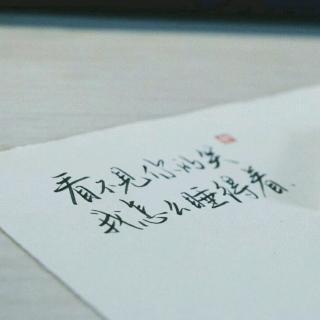 看不見你的笑
我怎么睡得着